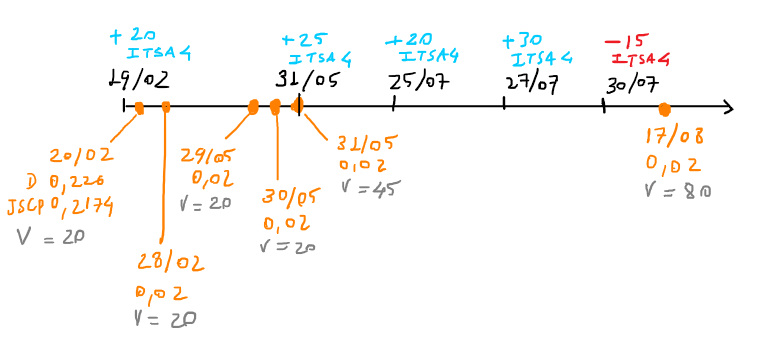 +20
ITSA4
19/02
+25
ITSA4
31/05
+20
ITSA4
25/07
+30
ITSA4
27/07
-15
ITSA4
30/07
20/02
D 0,226
JSCP 0,2174
V = 20
28/02
0,02
V = 20
29/05
0,02
V = 20
30/05
0,02
V = 20
31/05
0,02
V = 45
17/08
0,02
V = 80